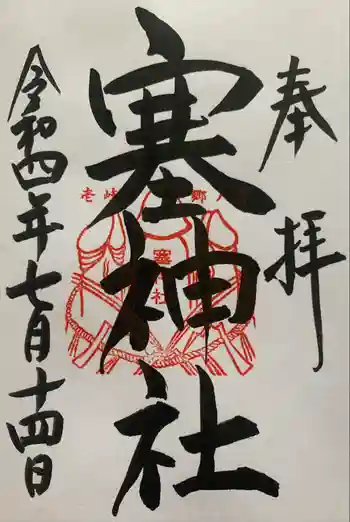 奉拝
塞神社
令和四年七月十四日
壱岐
郷
塞
社